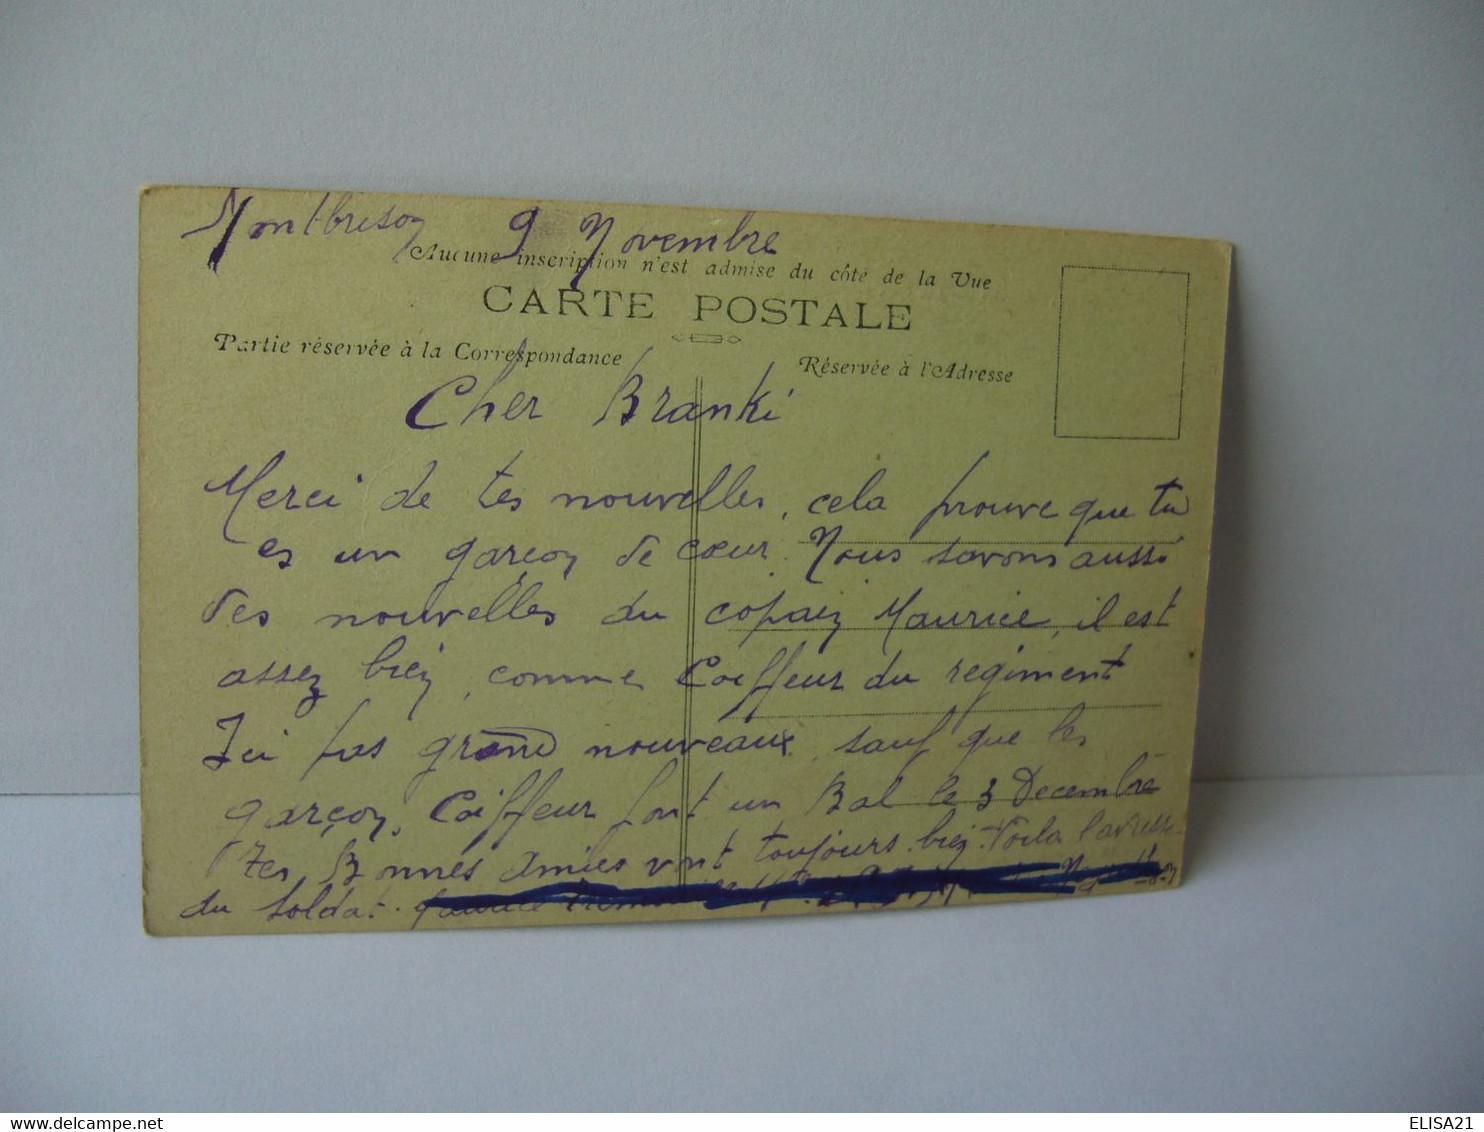 Montbrison 9 Novembre
Aucune inscription n'est admise du côté de la Vue
CARTE POSTALE
Partie réservée à la Correspondance
Réservée à l'Adresse
Cher Branki
Merci de tes nouvelles, cela prouve que tu
es un garçon de cœur. Nous savons aussi
des nouvelles du copain Maurice, il est
assez bien, comme Coiffeur du regiment
Ici pas grand nouveaux, sauf que les
garçon, Coiffeur font un Bal le 3 Decembre
Tes Bonnes Amies vont toujours bien. Voila l'adresse
du soldat.
ELISA21
delcampe.net